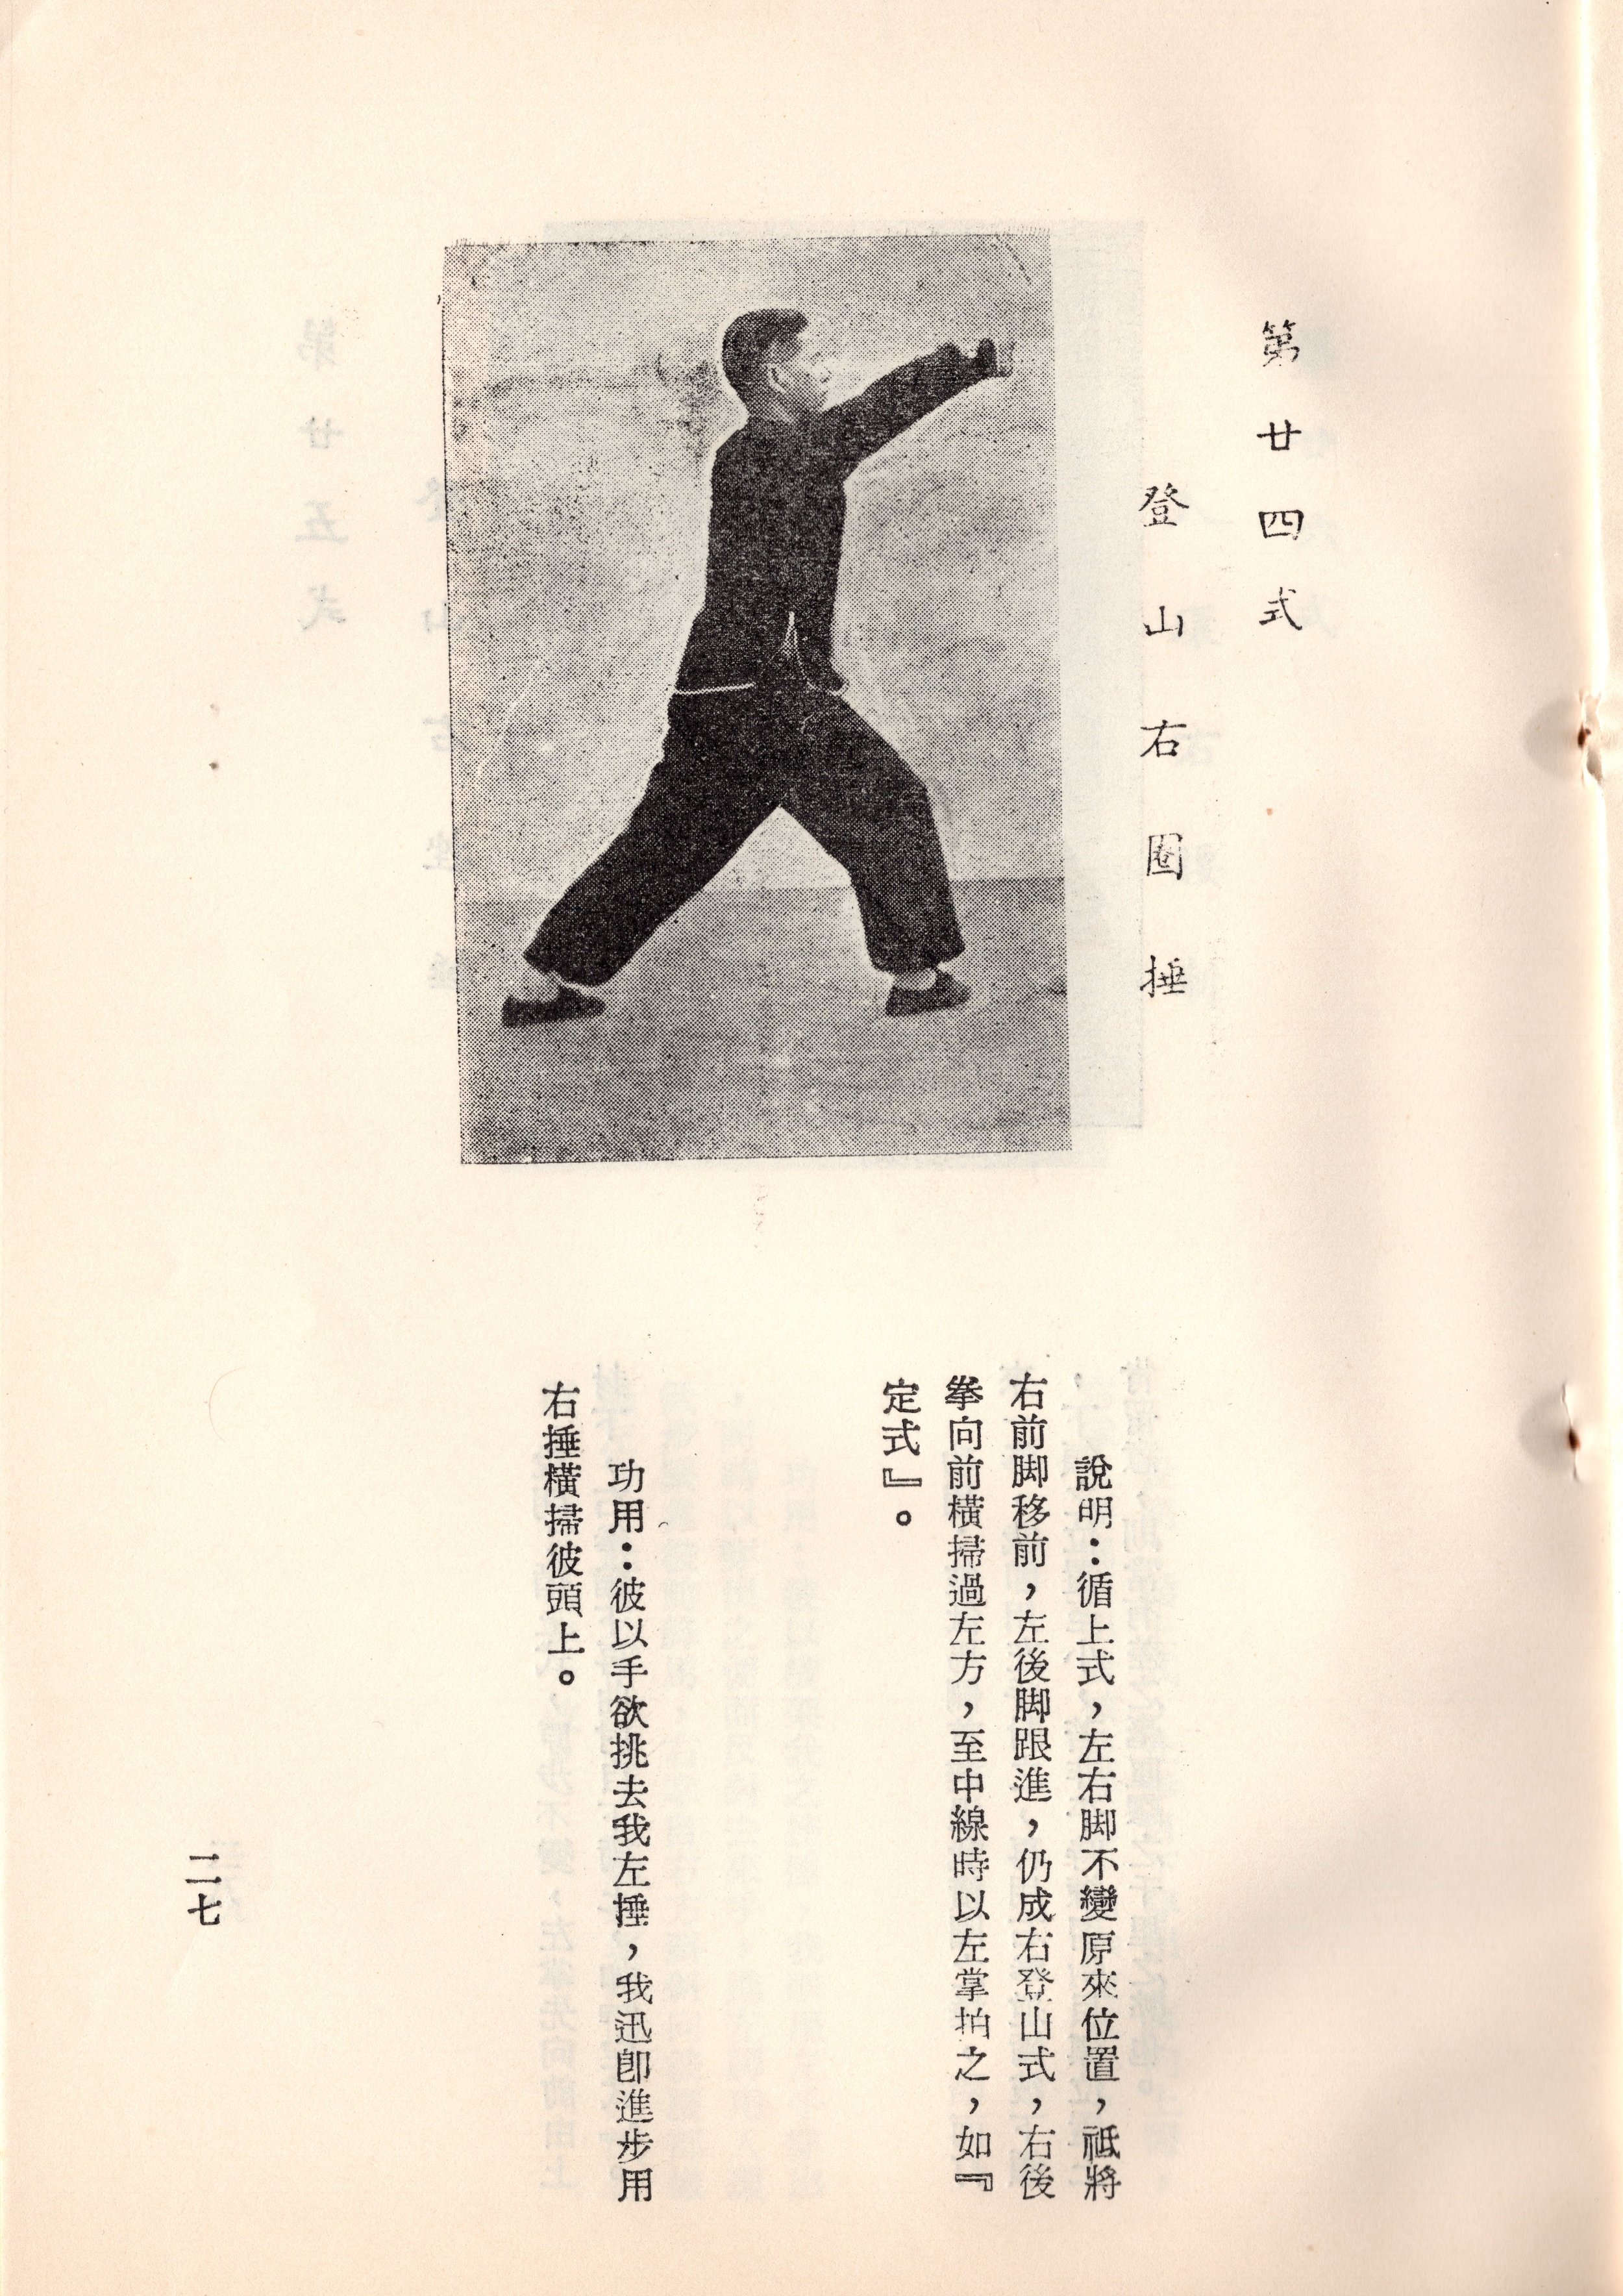 第廿四式
登山右圈捶
說明：循上式，左右脚不變原來位置，祗將
右前脚移前，左後脚跟進，仍成右登山式，右後
拳向前橫掃過左方，至中線時以左掌拍之，如『
定式』。
功用：彼以手欲挑去我左捶，我迅卽進步用
右捶橫掃彼頭上。
二七